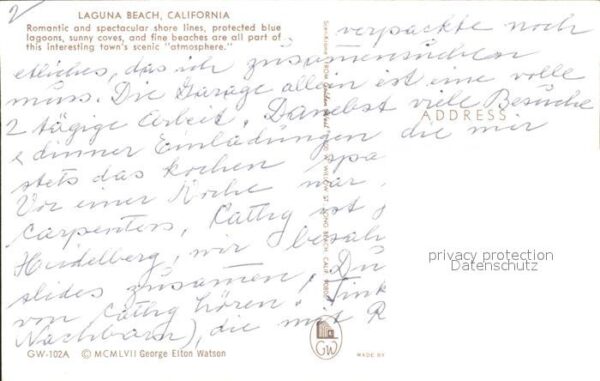 2
LAGUNA BEACH, CALIFORNIA
Romantic and spectacular shore lines, protected blue
lagoons, sunny coves, and fine beaches are all part of
this interesting town's scenic "atmosphere."
verpackte noch
etliches, das ich zusammensuchen
muss. Die Garage allein ist eine volle
2 tägige Arbeit. Danebst viele Besuche
ADDRESS
& dinner Einladungen die mir
stets das kochen spa
Vor einer Woche war
carpenters, Cathy ist
Heidelberg, wir besah
slides zusammen, Du
von Cathy hören.
Nachbarn), die mit R
privacy protection
Datenschutz
GW-102A © MCMLVII George Elton Watson
GW
MADE BY